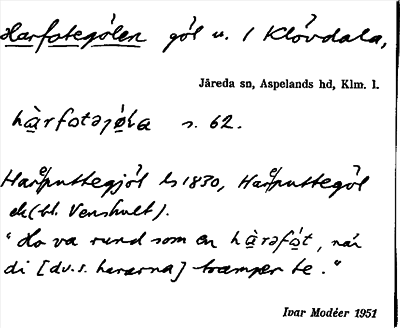 Harfotegölen göl u. 1 Klövdala,
Järeda sn, Aspelands hd, Klm. l.
hàrfotəjö́la s. 62.
Harputtegjöl ls 1830, Harputtegöl
ek (bl. Venshult).
"Ho va rund som en hàrəfo̱t, när
di [dv.s. hararna] tramper te."
Ivar Modéer 1951